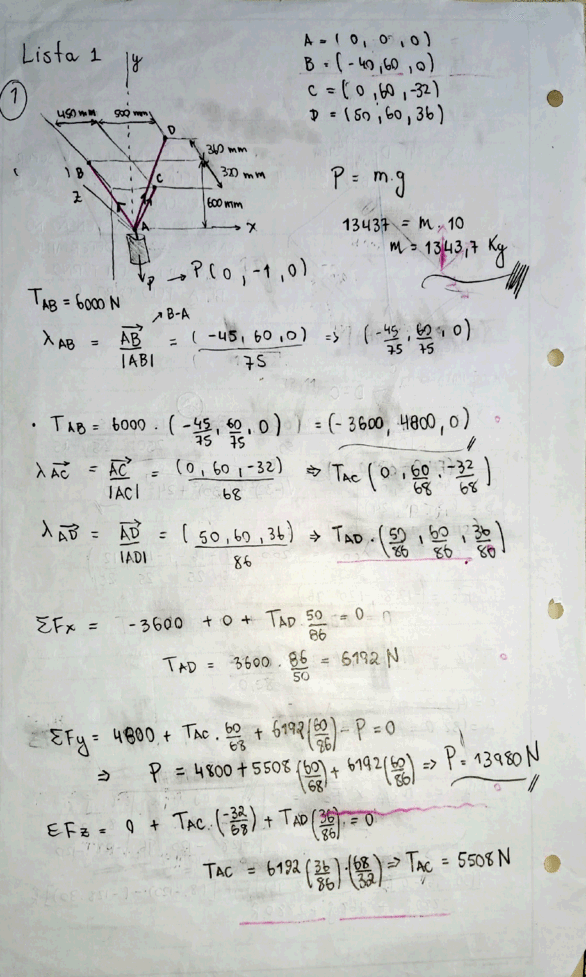 Lista 1
A = ( 0, 0, 0)
B = (-40, 60, 0)
C = (0, 60, -32)
D = (50, 60, 36)
1
y
450 mm
500 mm
D
360 mm
320 mm
B
C
Z
600 mm
A
x
P → P(0, -1, 0)
P = m.g
13437 = m. 10
m = 1343,7 Kg
TAB = 6000 N
↗ B-A
λAB = AB/|AB| = (-45, 60, 0)/75 => (-45/75, 60/75, 0)
• TAB = 6000 . (-45/75, 60/75, 0) = (-3600, 4800, 0)
λAC = AC/|AC| = (0, 60, -32)/68 => TAC (0, 60/68, -32/68)
λAD = AD/|AD| = (50, 60, 36)/86 => TAD . (50/86, 60/86, 36/86)
ΣFx = -3600 + 0 + TAD 50/86 = 0
TAD = 3600 . 86/50 = 6192 N
ΣFy = 4800 + TAC . 60/68 + 6192(60/86) - P = 0
=> P = 4800 + 5508 (60/68) + 6192(60/86) => P = 13980 N
ΣFz = 0 + TAC.(-32/68) + TAD(36/86) = 0
TAC = 6192 (36/86) . (68/32) => TAC = 5508 N